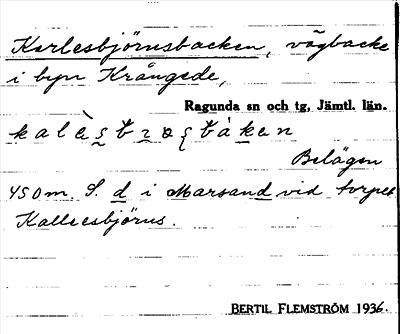 Karlesbjörnsbacken, vägbacke
i byn Krångede,
Ragunda sn och tg, Jämtl. län.
Belägen
450 m. S. d i Marsand vid torpet
Kallesbjörns.
BERTIL FLEMSTRÖM 1936.